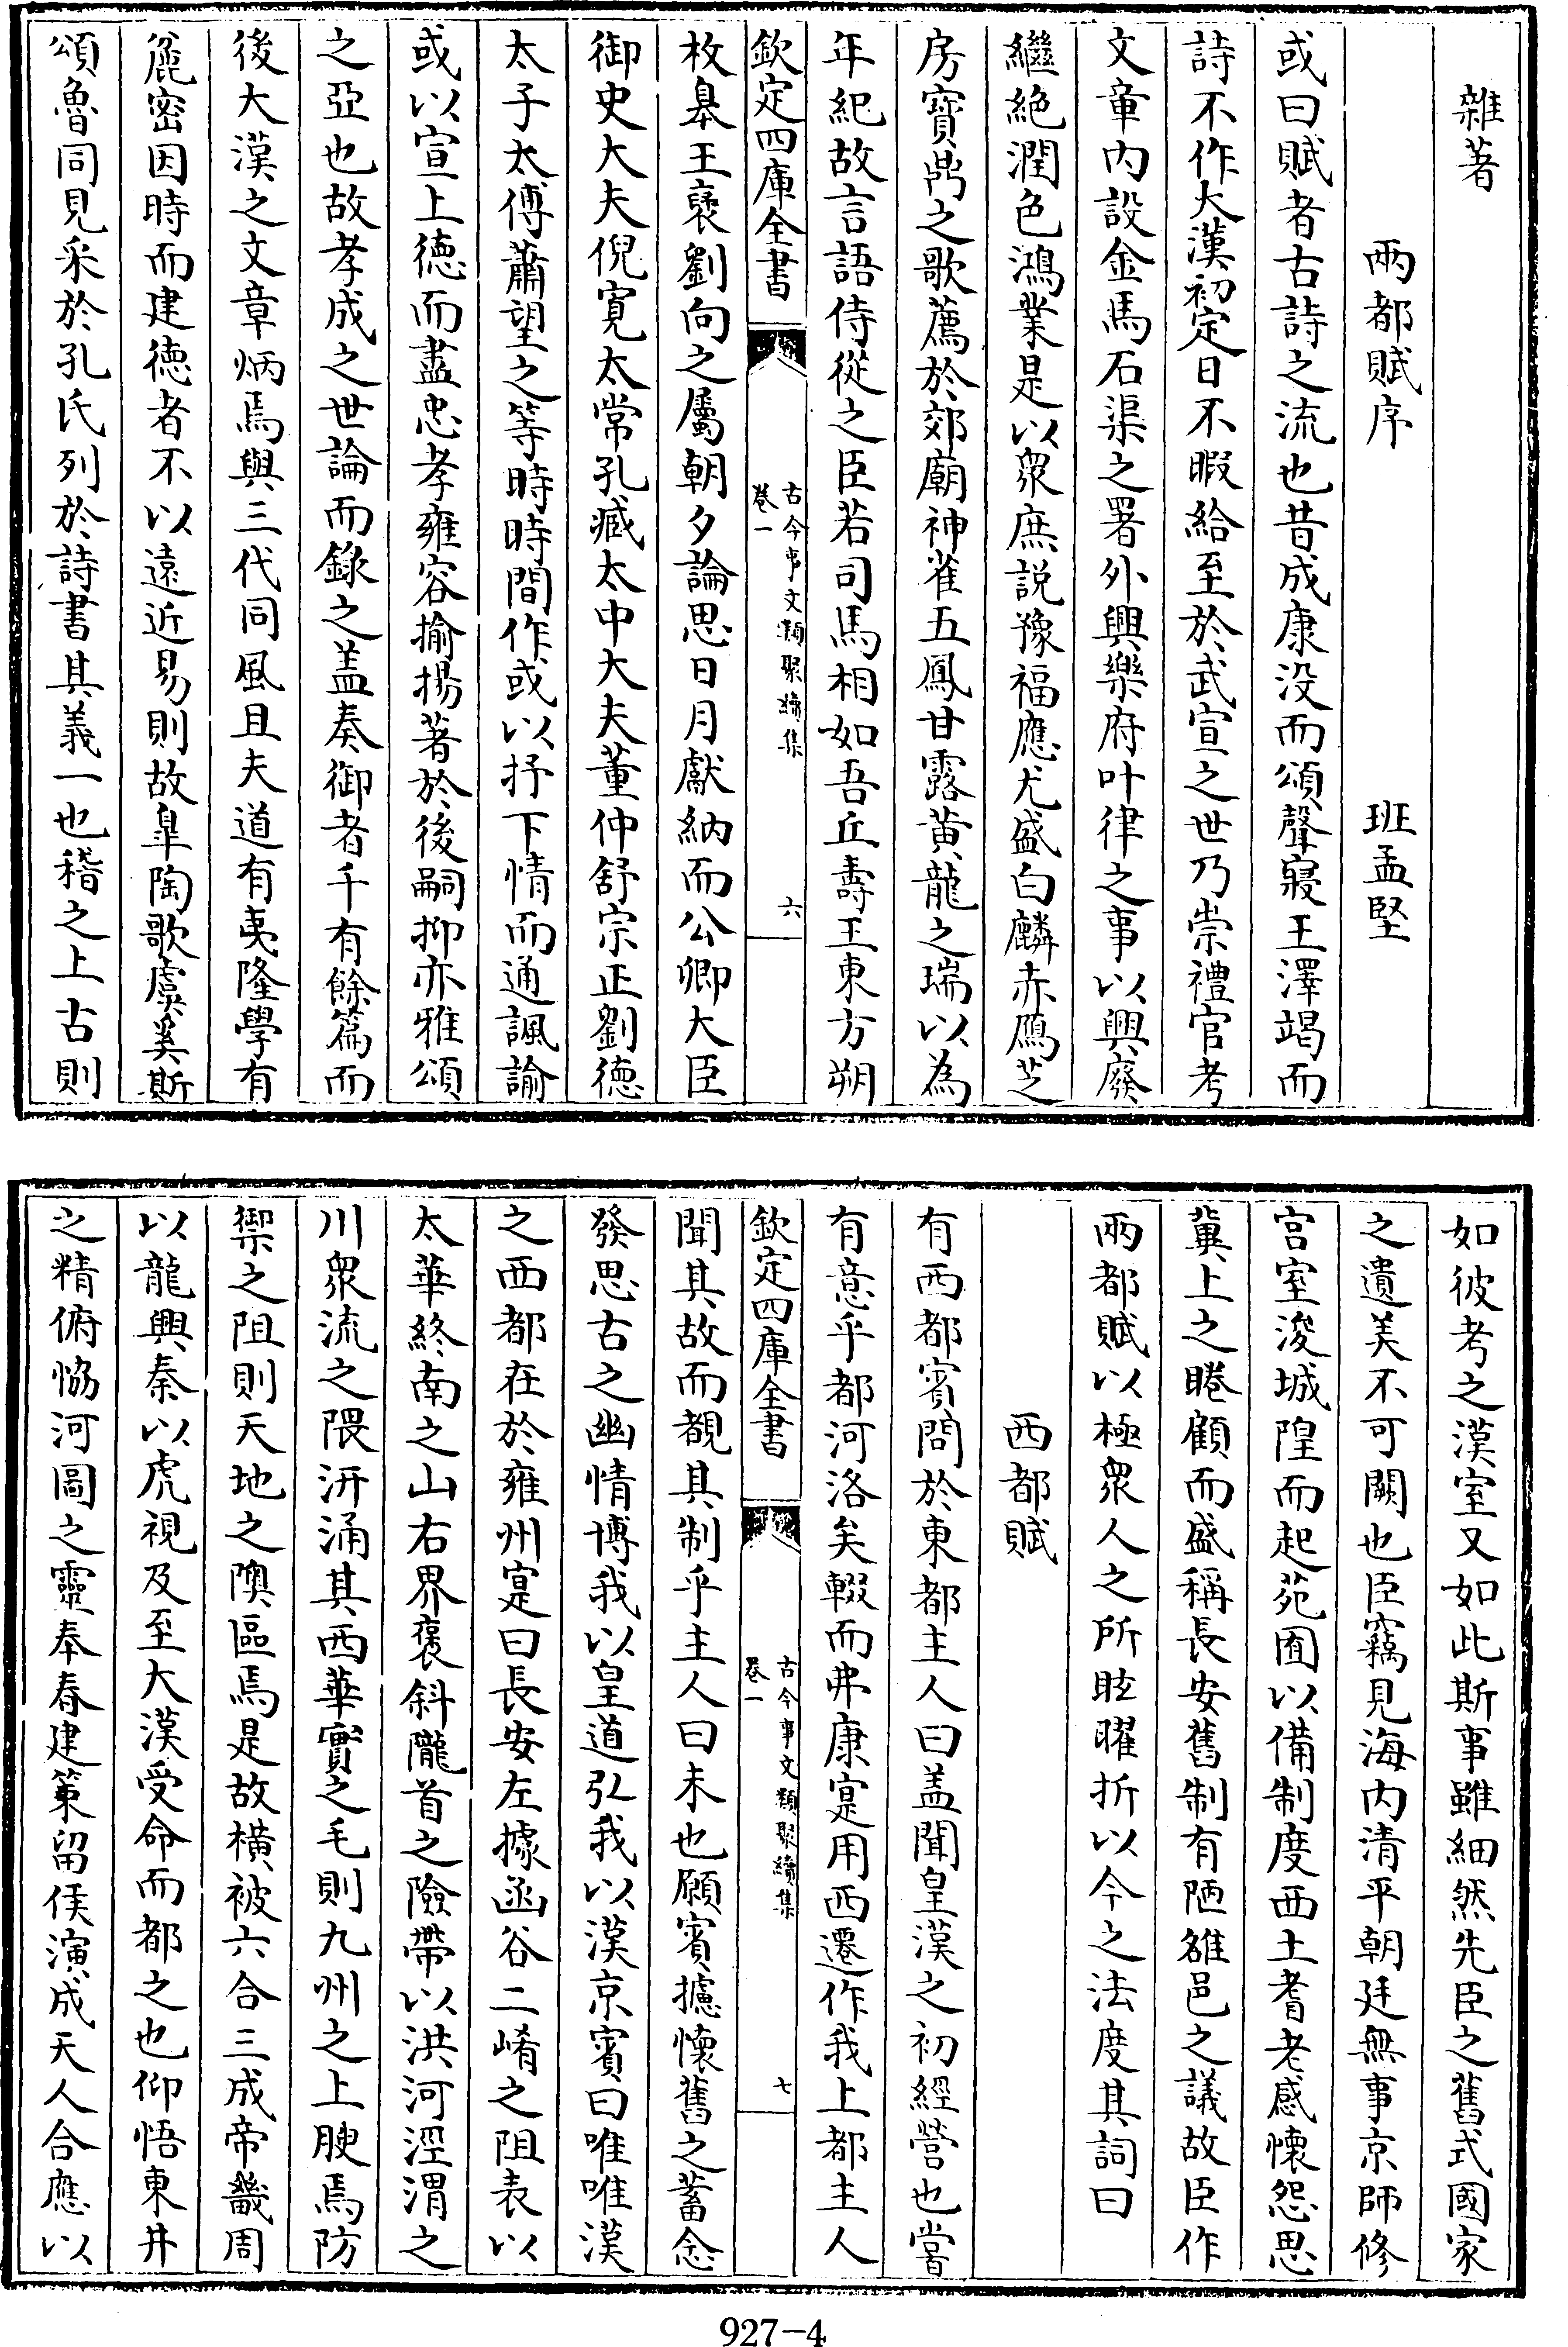 雜著
兩都賦序 班孟堅
或曰賦者古詩之流也昔成康没而頌聲寢王澤竭而
詩不作大漢初定日不暇給至於武宣之世乃崇禮官考
文章内設金馬石渠之署外興樂府叶律之事以興廢
繼絶潤色鴻業是以衆庶説豫福應尤盛白麟赤鴈芝
房寶鼎之歌薦於郊廟神雀五鳳甘露黄龍之瑞以為
年紀故言語侍從之臣若司馬相如吾丘壽王東方朔
欽定四庫全書 古今事文類聚續集 卷一 六
枚皋王褒劉向之屬朝夕論思日月獻納而公卿大臣
御史大夫倪寛太常孔臧太中大夫董仲舒宗正劉德
太子太傅蕭望之等時時間作或以抒下情而通諷諭
或以宣上德而盡忠孝雍容揄揚著於後嗣抑亦雅頌
之亞也故孝成之世論而錄之盖奏御者千有餘篇而
後大漢之文章炳焉與三代同風且夫道有夷隆學有
麄密因時而建德者不以遠近易則故臯陶歌虞奚斯
頌魯同見采於孔氏列於詩書其義一也稽之上古則
如彼考之漢室又如此斯事雖細然先臣之舊式國家
之遺美不可闕也臣竊見海内清平朝廷無事京師修
宫室浚城隍而起苑囿以備制度西土耆老感懷怨思
冀上之睠顧而盛稱長安舊制有陋雒邑之議故臣作
兩都賦以極衆人之所眩曜折以今之法度其詞曰
西都賦
有西都賓問於東都主人曰盖聞皇漢之初經營也嘗
有意乎都河洛矣輟而弗康寔用西遷作我上都主人
欽定四庫全書 古今事文類聚續集 卷一 七
聞其故而覩其制乎主人曰未也願賓攄懷舊之蓄念
發思古之幽情博我以皇道弘我以漢京賓曰唯唯漢
之西都在於雍州寔曰長安左據函谷二崤之阻表以
太華終南之山右界褒斜隴首之險帶以洪河涇渭之
川衆流之隈汧涌其西華實之毛則九州之上腴焉防
禦之阻則天地之隩區焉是故横被六合三成帝畿周
以龍興秦以虎視及至大漢受命而都之也仰悟東井
之精俯恊河圖之靈奉春建策留侯演成天人合應以
927-4